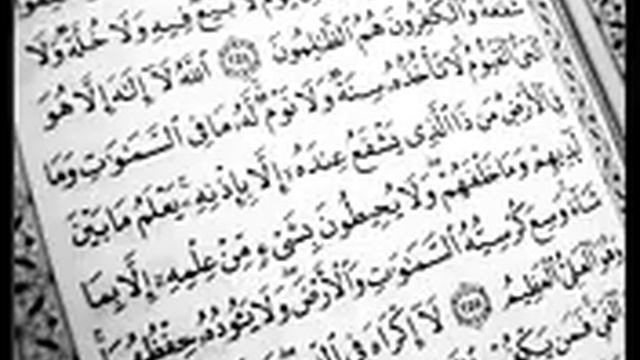 يوم لا بيع فيه ولا خلة ولا
شفعة والكفرون هم الظلمون ٢٥٤ الله لا إله إلا هو
الحى القيوم لا تأخذه سنة ولا نوم له ما فى السموت وما
فى الأرض من ذا الذى يشفع عنده إلا بإذنه يعلم ما بين
أيديهم وما خلفهم ولا يحيطون بشىء من علمه إلا بما
شاء وسع كرسيه السموت والأرض ولا يئوده حفظهما
وهو العلى العظيم ٢٥٥ لا إكراه فى
الغى فمن يكفر